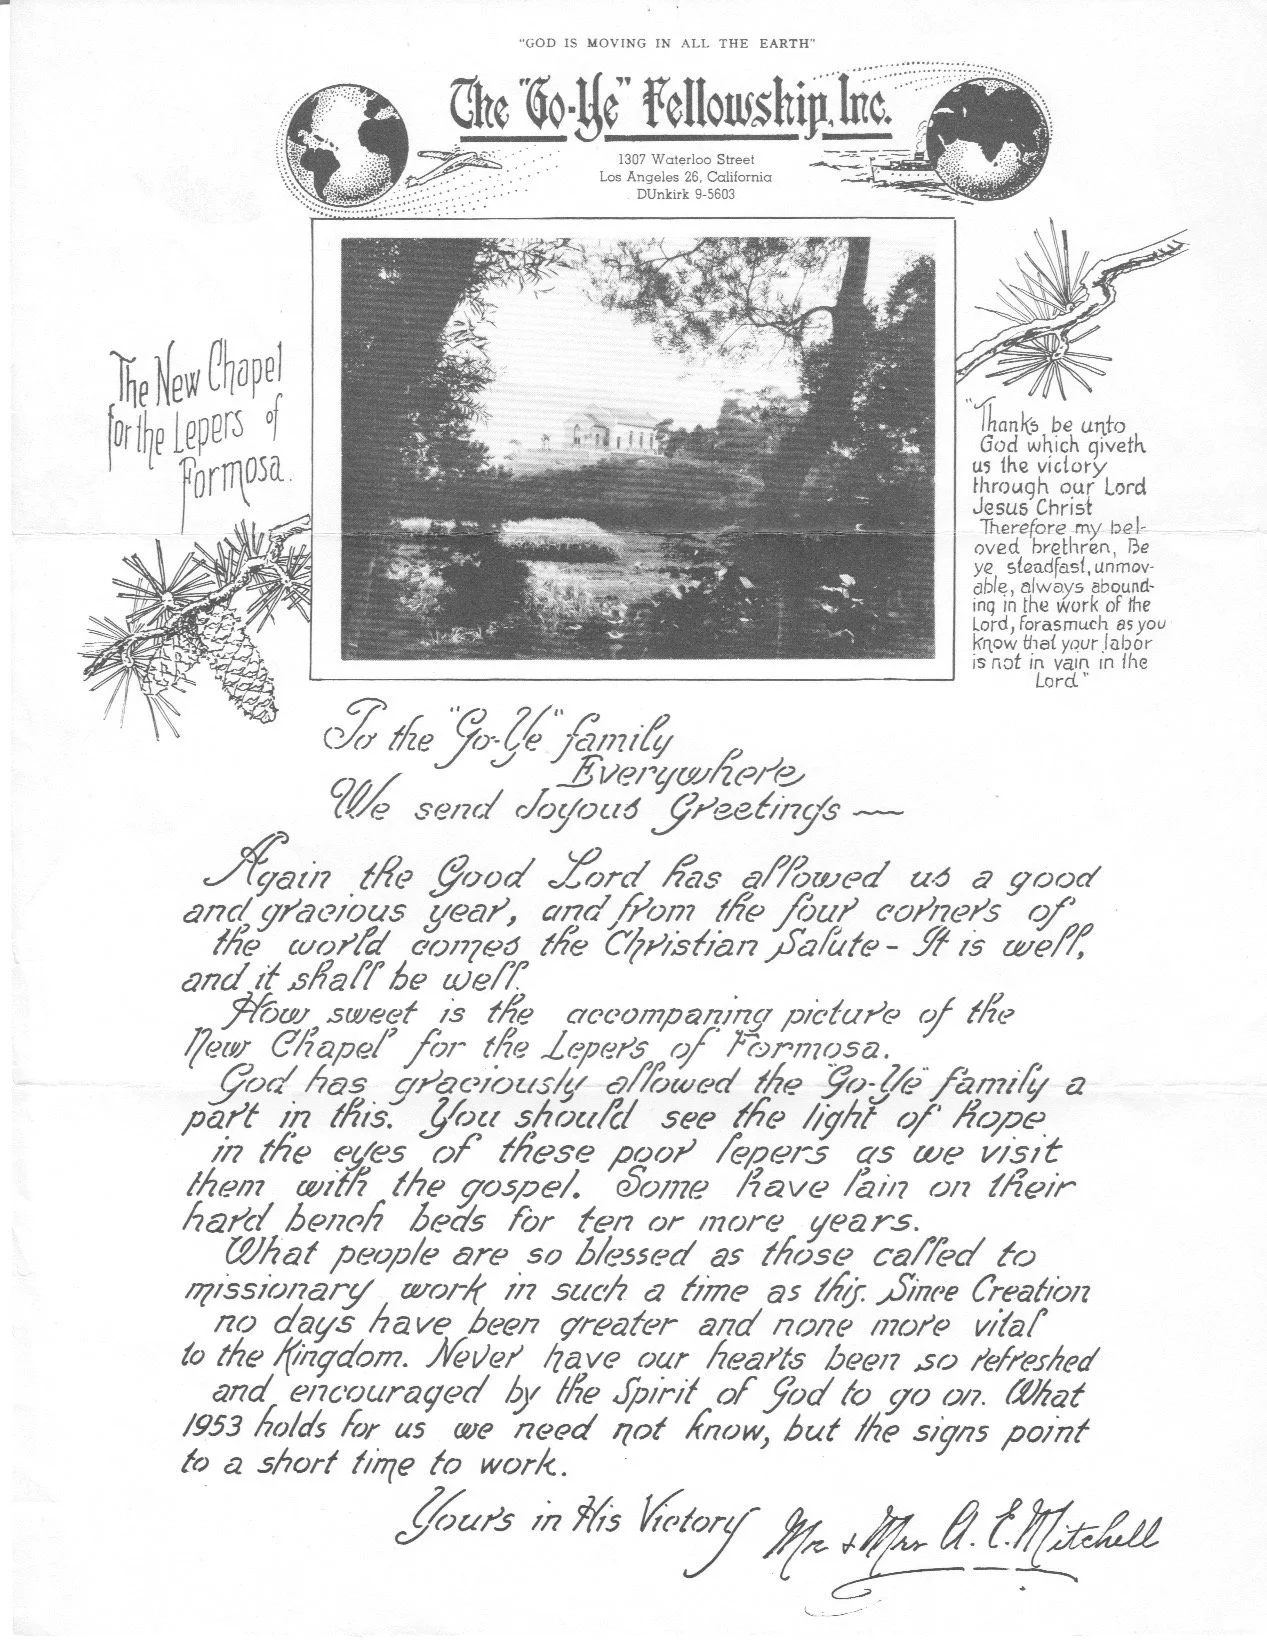 "GOD IS MOVING IN ALL THE EARTH"
The "Go-Ye" Fellowship, Inc.
1307 Waterloo Street
Los Angeles 26, California
DUnkirk 9-5603
The New Chapel
for the Lepers of
Formosa.
"Thanks be unto
God which giveth
us the victory
through our Lord
Jesus Christ
Therefore my bel-
oved brethren, Be
ye steadfast, unmov-
able, always abound-
ing in the work of the
Lord, forasmuch as you
know that your labor
is not in vain in the
Lord"
To the "Go-Ye" family
Everywhere
We send Joyous Greetings —
Again the Good Lord has allowed us a good
and gracious year, and from the four corners of
the world comes the Christian Salute - It is well,
and it shall be well.
How sweet is the accompaning picture of the
New Chapel for the Lepers of Formosa.
God has graciously allowed the "Go-Ye" family a
part in this. You should see the light of hope
in the eyes of these poor lepers as we visit
them with the gospel. Some have lain on their
hard bench beds for ten or more years.
What people are so blessed as those called to
missionary work in such a time as this. Since Creation
no days have been greater and none more vital
to the Kingdom. Never have our hearts been so refreshed
and encouraged by the Spirit of God to go on. What
1953 holds for us we need not know, but the signs point
to a short time to work.
Yours in His Victory
Mr & Mrs A. E. Mitchell